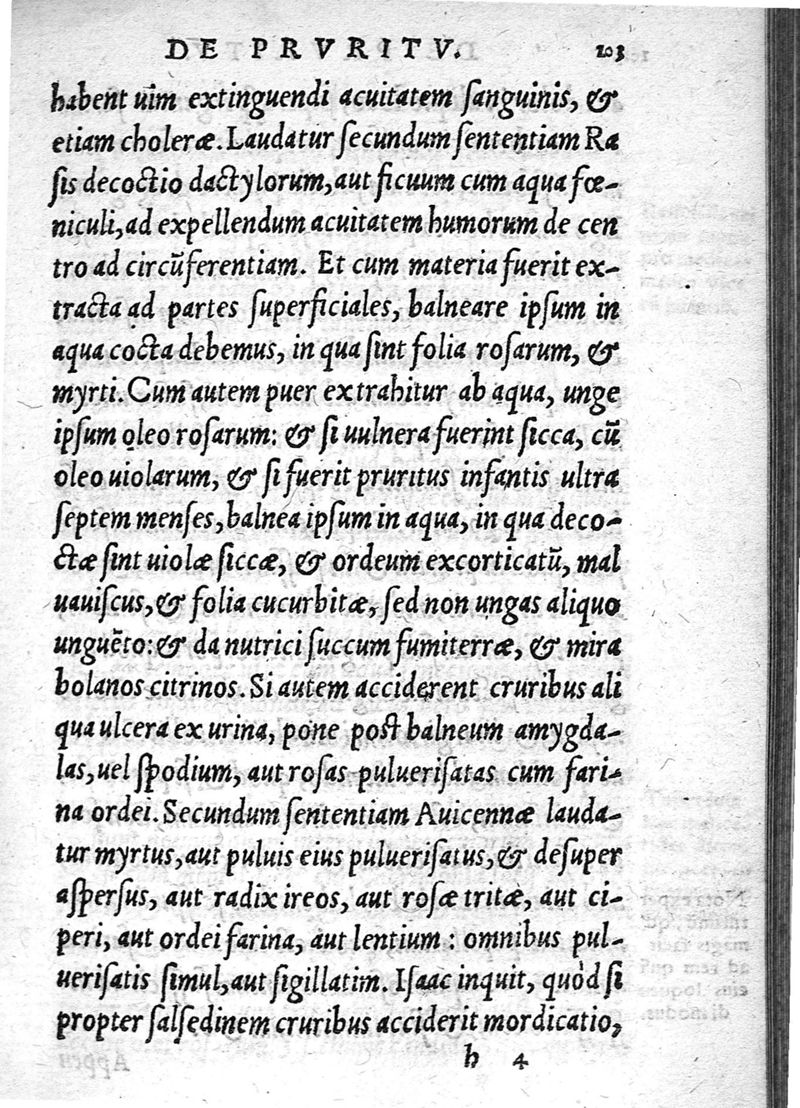 DE PRVRITV. 103
habent uim extinguendi acuitatem ſanguinis, &
etiam choleræ. Laudatur ſecundum ſententiam Ra
ſis decoctio dactylorum, aut ficuum cum aqua fœ-
niculi, ad expellendum acuitatem humorum de cen
tro ad circũferentiam. Et cum materia fuerit ex-
tracta ad partes ſuperficiales, balneare ipſum in
aqua cocta debemus, in qua ſint folia roſarum, &
myrti. Cum autem puer extrahitur ab aqua, unge
ipſum oleo roſarum: & ſi uulnera fuerint ſicca, cũ
oleo uiolarum, & ſi fuerit pruritus infantis ultra
ſeptem menſes, balnea ipſum in aqua, in qua deco-
ctæ ſint uiolæ ſiccæ, & ordeum excorticatũ, mal
uauiſcus, & folia cucurbitæ, ſed non ungas aliquo
unguẽto: & da nutrici ſuccum fumiterræ, & mira
bolanos citrinos. Si autem acciderent cruribus ali
qua ulcera ex urina, pone poſt balneum amygda-
las, uel ſpodium, aut roſas pulueriſatas cum fari-
na ordei. Secundum ſententiam Auicennæ lauda-
tur myrtus, aut puluis eius pulueriſatus, & deſuper
aſperſus, aut radix ireos, aut roſæ tritæ, aut ci-
peri, aut ordei farina, aut lentium: omnibus pul-
ueriſatis ſimul, aut ſigillatim. Iſaac inquit, quòd ſi
propter ſalſedinem cruribus acciderit mordicatio,
h 4